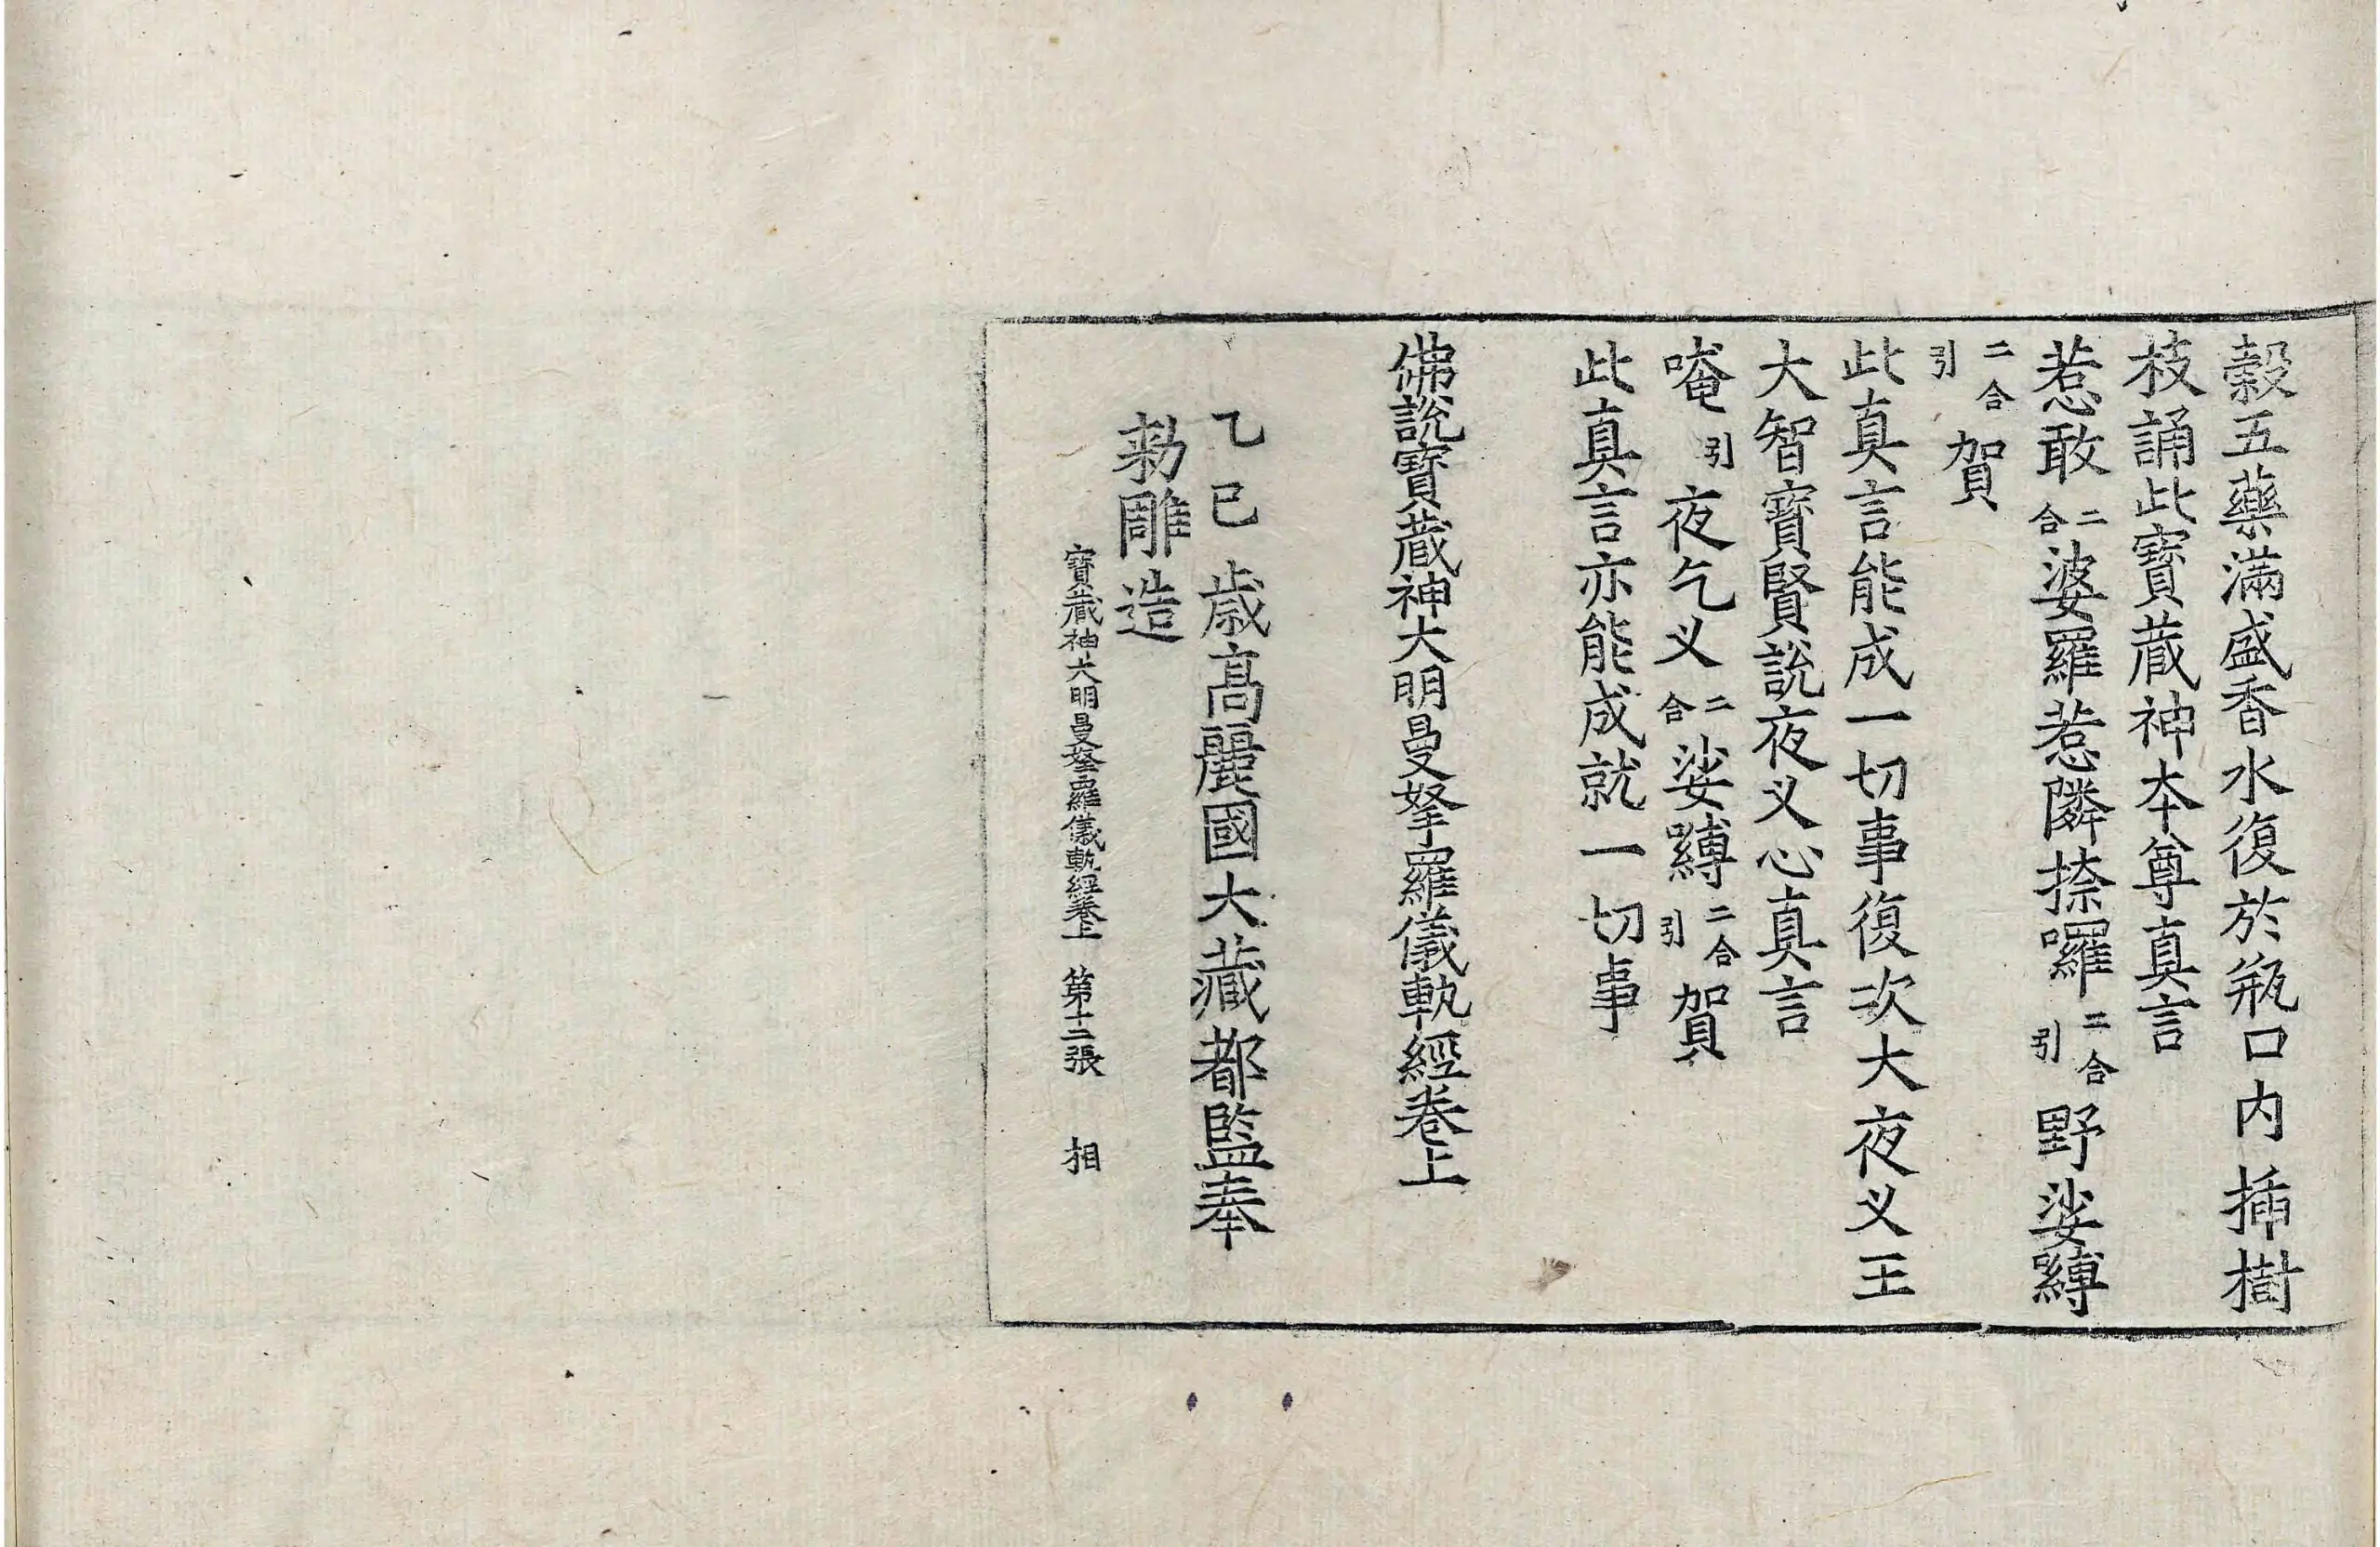 穀五藥滿盛香水復於瓶口內揷樹
枝誦此寶蔵神夲尊真言
惹敢二合婆羅惹隣捺囉二合引野娑嚩
二合引賀
此真言能成一切事復次大夜义王
大智寶賢說夜义心真言
唵引夜乞义二合娑嚩二合引賀
此真言亦能成就一切事
佛說寶蔵神大明曼拏羅儀軌經卷上
乙巳歳高麗國大藏都監奉
勑雕造
寶蔵神大明曼拏羅儀軌經卷上 第十二張 相